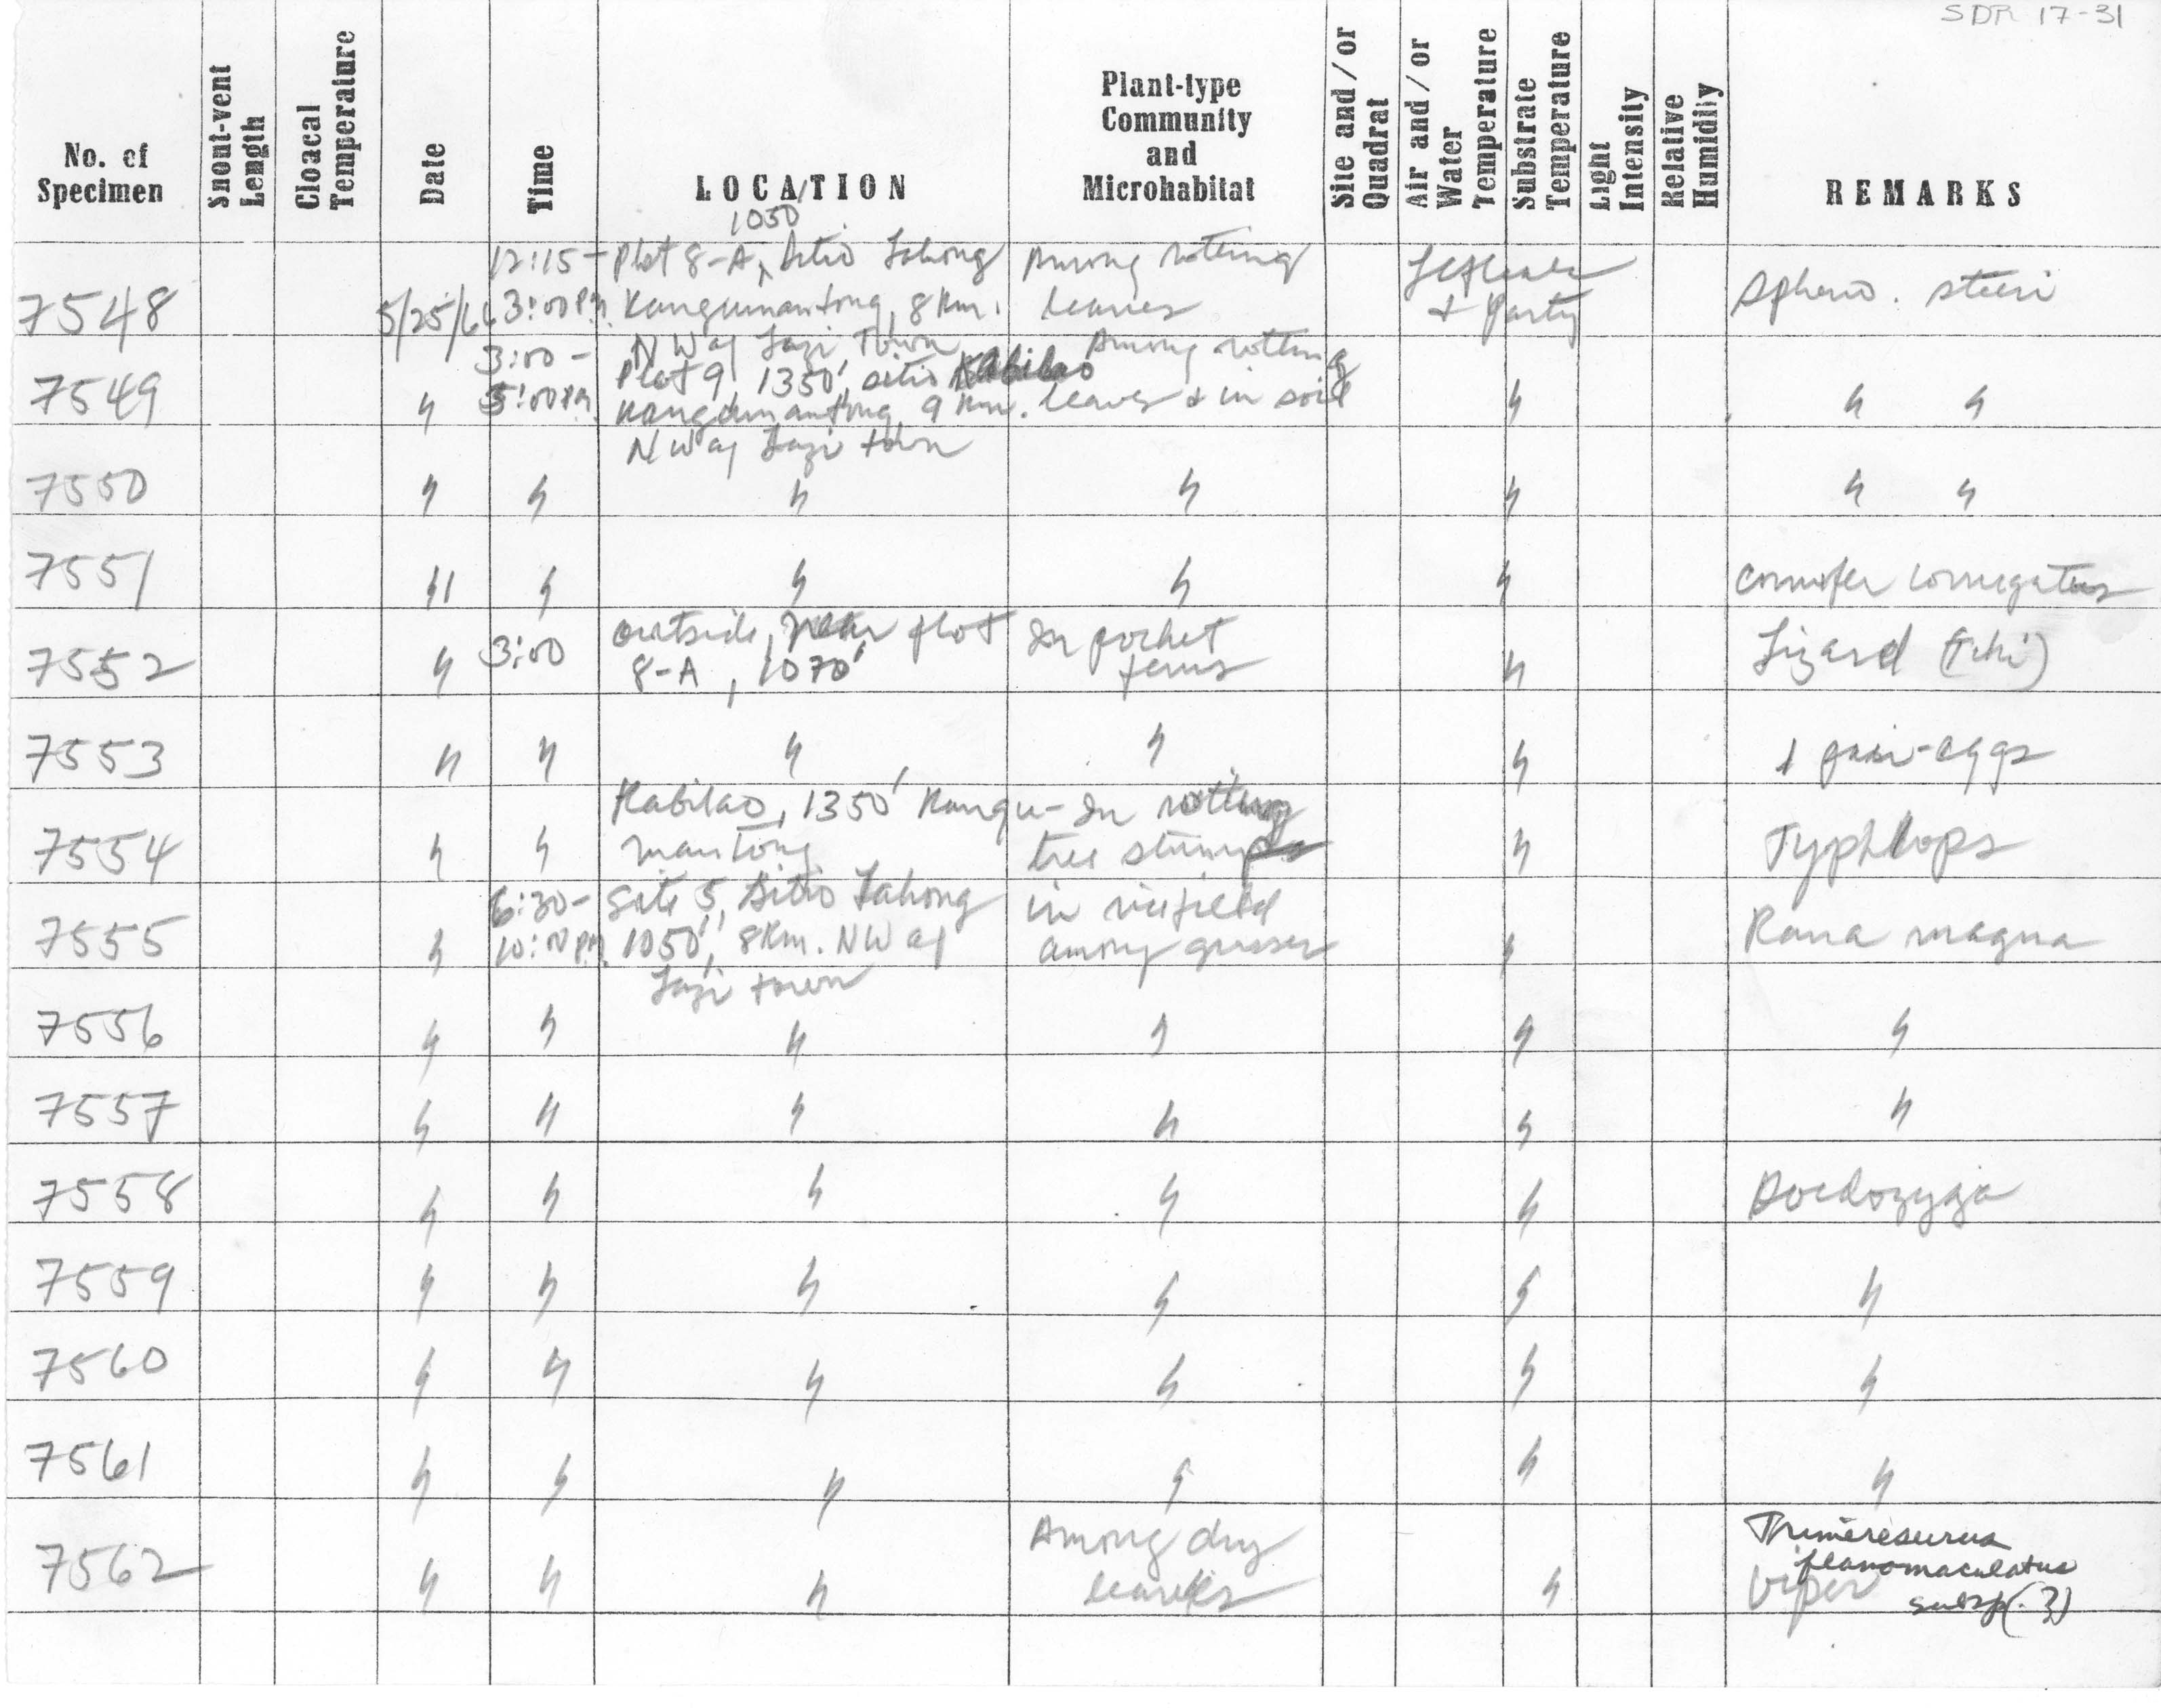 SDR 17-31
No. of Specimen
Snout-vent Length
Cloacal Temperature
Date
Time
LOCATION
Plant-type Community and Microhabitat
Site and/or Quadrat
Air and/or Water Temperature
Substrate Temperature
Light Intensity
Relative Humidity
REMARKS
7548 5/25/66 12:15- 3:00 PM Plot 8-A, 1050' Sitio Kangumantong, 8 Km. NW of Lazi Town Among rotting leaves & Party Spheno. steeri
7549 " 3:00- 5:00 PM Plot 9, 1350', sitio Kabilao Kangumantong 9 Km. NW of Lazi town Among rotting leaves & in soil " " "
7550 " " " " " " "
7551 " " " " "
7552 " 3:00 outside, near plot 8-A, 1070' In pocket ferns " Lizard
7553 " " " " " eggs
7554 " " Kabilao, 1350' Kangu-mantong In rotting tree stumps " Typhlops
7555 " 6:30- 10:00 PM Site 5, Sitio 1050', 8 Km. NW of Lazi town in ricefield among grasses " Rana magna
7556 " " " " " "
7557 " " " " " "
7558 " " " " " Ooedozyga
7559 " " " " " "
7560 " " " " " "
7561 " " " " " "
7562 " " " Among dry leaves " Trimeresurus flavomaculatus subsp(.?) Viper